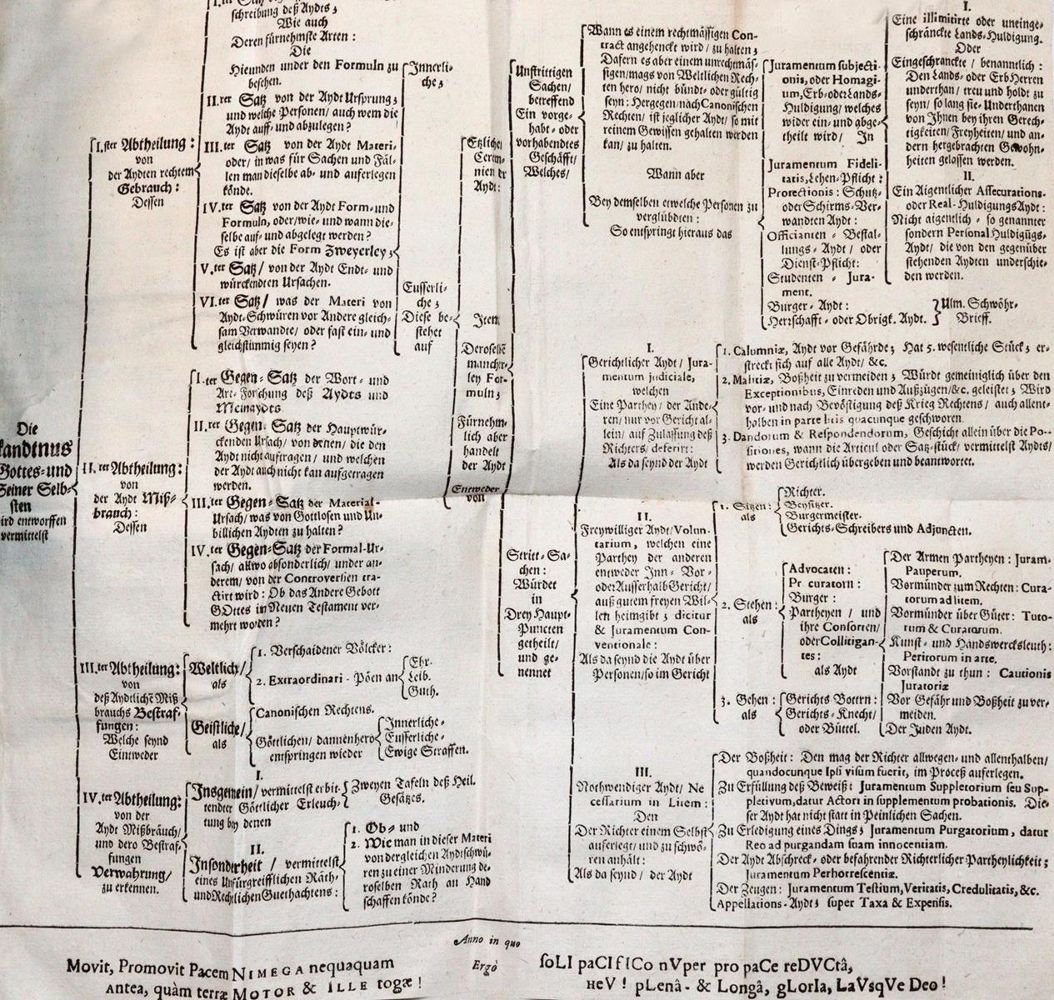 Die
Gottes- und
Seiner Selb-
sten
wird entworffen
vermittelst
I.ster Abtheilung:
von
der Aydten rechtem
Gebrauch:
Dessen
I.ter Satz
schreibung deß Aydts;
Wie auch
Deren fürnehmste Arten:
Die
Hieunden under den Formuln zu
besehen.
II.ter Satz von der Aydt Ursprung;
und welche Personen/ auch wem die
Aydt auff- und abzulegen?
III.ter Satz von der Aydt Materi-
oder/ in was für Sachen und Fäl-
len man dieselbe ab- und auferlegen
könde.
IV.ter Satz von der Aydt Form- und
Formula, oder/ wie- und wann die-
selbe auf- und abgelegt werden?
Es ist aber die Form Zweyerley;
V.ter Satz/ von der Aydt Endt- und
würckenden Ursachen.
VI.ter Satz/ was der Materi von
Aydt-Schwüren vor Andere gleich-
sam Verwandte/ oder fast ein- und
gleichstimmig seyen?
Innerli-
che;
Eusserli-
che;
Diese be-
stehet
auf
Etlichen
Cerem-
nien der
Aydt:
Item
Deroselbe
mancher-
ley For-
muln;
Fürnehm-
lich aber
handelt
der Aydt
Entweder
von
Unstrittigen
Sachen/
betreffend
Ein vorge-
habt- oder
vorhabendtes
Geschäfft/
Welches/
Wann es einem rechtmässigen Con-
tract angehenckt wird/ zu halten;
Dafern es aber einem unrechtmäs-
sigen/ mags von Weltlichen Rech-
ten hero/ nicht bündt- oder gültig
seyn: Hergegen/ nach Canonischen
Rechten/ ist jeglicher Aydt/ so mit
reinem Gewissen gehalten werden
kan/ zu halten.
Wann aber
Bey demselben etwelche Personen zu
verglübdten:
So entspringt hieraus das
Juramentum subjecti-
onis, oder Homagi-
um, Erb- oder Lands-
Huldigung/ welches
wider ein- und abge-
theilt wird/ In
Juramentum Fideli-
tatis, Lehen-Pflicht:
Protectionis: Schutz-
oder Schirms-Ver-
wandten Aydt:
Officianten- Bestal-
lungs- Aydt/ oder
Dienst-Pflicht:
Studenten- Jura-
ment.
Burger- Aydt:
Herrschafft- oder Obrigk. Aydt.
Ulm. Schwöhr-
Brieff.
I.
Eine illimitirte oder uneinge-
schränckte Lands-Huldigung.
Oder
Eingeschranckte/ benanntlich:
Den Lands- oder Erb Herren
underthan/ treu und holdt zu
seyn/ so lang sie- Underthanen
von Ihnen bey ihren Gerech-
tigkeiten/ Freyheiten/ und an-
dern hergebrachten Gewohn-
heiten gelassen werden.
II.
Ein Aigentlicher Assecurations-
oder Real-Huldigungs Aydt:
Nicht aigentlich- so genannter
sondern Personal Huldigūgs-
Aydt/ die von den gegenüber
stehenden Aydten underschie-
den werden.
II.ter Abtheilung:
von
der Aydt Miß-
brauch:
Dessen
I.ter Gegen-Satz der Wort- und
Art- Forschung deß Aydts und
Meinaydts
II.ter Gegen-Satz der Hauptwür-
ckenden Ursach/ von denen/ die den
Aydt nicht auftragen/ und welchen
der Aydt auch nicht kan aufgetragen
werden.
III.ter Gegen-Satz der Material-
Ursach/ was von Gottlosen und Un-
billichen Aydten zu halten?
IV.ter Gegen-Satz der Formal-Ur-
sach/ allwo absonderlich/ under an-
derem/ von der Controversien tra-
ctirt wird: Ob das Andere Gebott
GOttes im Neuen Testament ver-
mehrt worden?
Stritt-Sa-
chen:
Würdet
in
Drey Haupt-
Puncten
getheilt/
und ge-
nennet
I.
Gerichtlicher Aydt/ Jura-
mentum judiciale,
welchen
Eine Parthey/ der Ande-
ren/ nur vor Gericht al-
lein/ auf Zulassung deß
Richters/ deferirt:
Als da seynd der Aydt
1. Calumniæ, Aydt vor Gefährde; Hat 5. wesentliche Stück; er-
streckt sich auf alle Aydt/ &c.
2. Malitiæ, Boßheit zu vermeiden; Würdt gemeiniglich über den
Exceptionibus, Einreden und Außzügen/ &c. geleistet; Wird
vor- und nach Bevöstigung deß Krieg Rechtens/ auch allent-
halben in parte litis quacunque geschworen.
3. Dandorum & Respondendorum, Geschicht allein über die Po-
sitiones, wann die Articul oder Satz-stück/ vermittelst Aydts/
werden Gerichtlich übergeben und beantwortet.
II.
Freywilliger Aydt/ Volun-
tarium, welchen eine
Parthey der anderen
entweder Inn- Vor-
oder Ausserhalb Gericht/
auß gutem freyen Wil-
len heimgibt; dicitur
& Juramentum Con-
ventionale:
Als da seynd die Aydt über
Personen/ so im Gericht
1. Sitzen:
als
Richter.
Beysitzer.
Burgermeister.
Gerichts-Schreibers und Adjuncten.
2. Stehen:
als
Advocaten:
Pr curatorn:
Burger:
Partheyen/ und
ihre Consorten/
oder Collitigan-
tes:
als Aydt
Der Armen Partheyen: Juram-
Pauperum.
Vormünder zum Rechten: Cura-
torum ad litem.
Vormünder über Güter: Tuto-
rum & Curatorum.
Kunst- und Handwercksleuth:
Peritorum in arte.
Vorstandt zu thun: Cautionis
Juratoriæ
Vor Gefähr und Boßheit zu ver-
meiden.
Der Juden Aydt.
3. Gehen:
als
Gerichts Botten:
Gerichts-Knecht/
oder Büttel.
III.ter Abtheilung:
von
deß Aydtlichē Miß
brauchs Bestraf-
fungen:
Welche seynd
Eintweder
Weltlich/
als
1. Verschaidener Völcker:
2. Extraordinari- Pöen an
Ehr-
Leib.
Guth.
Geistliche/
als
Canonischen Rechtens.
Göttlichen/ dannenhero
entspringen wieder
Innerliche-
Eusserliche-
Ewige Straffen.
IV.ter Abtheilung:
von der
Aydt Mißbräuch/
und dero Bestraf-
fungen
Verwahrung/
zu erkennen.
I.
Insgemein/ vermittelst erbit-
tender Göttlicher Erleuch-
tung by denen
Zweyen Tafeln deß Heil.
Gesätzes.
II.
Insonderheit/ vermittelst
eines Unfürgreifflichen Räth-
und Rechtlichen Guethachtens:
1. Ob- und
2. Wie man in dieser Materi
von dergleichen Aydtschwü-
ren zu einer Minderung de-
roselben Rath an Hand
schaffen könde?
III.
Nothwendiger Aydt/ Ne
cessarium in Litem:
Den
Der Richter einem Selbst
auferlegt/ und zu schwö-
ren anhält:
Als da seynd/ der Aydt
Der Boßheit: Den mag der Richter allwegen- und allenthalben/
quandocunque Ipsi visum fuerit, im Proceß auferlegen.
Zu Erfüllung deß Beweiß: Juramentum Suppletorium seu Sup-
pletivum, datur Actori in supplementum probationis. Die-
ser Aydt hat nicht statt in Peinlichen Sachen.
Zu Erledigung eines Dings; Juramentum Purgatorium, datur
Reo ad purgandam suam innocentiam.
Der Aydt Abschreck- oder befahrender Richterlicher Partheylichkeit;
Juramentum Perhorrescentiæ.
Der Zeugen: Juramentum Testium, Veritatis, Credulitatis, &c.
Appellations-Aydt; super Taxa & Expensis.
Anno in quo
Movit, Promovit Pacem NIMEGA nequaquam
antea, quàm terræ MOTOR & ILLE togæ!
Ergò
soLI paCIfICo nVper pro paCe reDVCtâ,
HeV! pLenâ- & Longâ, gLorIa, LaVsqVe Deo!